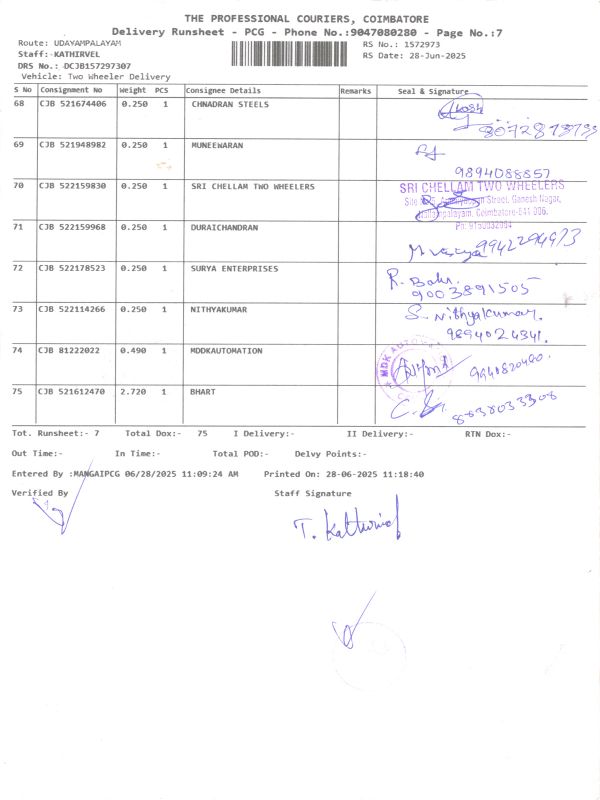 THE PROFESSIONAL COURIERS, COIMBATORE
Delivery Runsheet - PCG - Phone No.:9047080280 - Page No.:7
Route: UDAYAMPALAYAM RS No.: 1572973
Staff: KATHIRVEL RS Date: 28-Jun-2025
DRS No.: DCJB157297307
Vehicle: Two Wheeler Delivery
S No Consignment No Weight PCS Consignee Details Remarks Seal & Signature
68 CJB 521674406 0.250 1 CHNADRAN STEELS
69 CJB 521948982 0.250 1 MUNEEWARAN
9894088857
70 CJB 522159830 0.250 1 SRI CHELLAM TWO WHEELERS SRI CHELLAM TWO WHEELERS
Street, Ganesh Nagar,
Coimbatore-641 006.
71 CJB 522159968 0.250 1 DURAICHANDRAN
72 CJB 522178523 0.250 1 SURYA ENTERPRISES R. Babu.
9003891505
73 CJB 522114266 0.250 1 NITHYAKUMAR S. Nithyakumar.
9894024341.
74 CJB 81222022 0.490 1 MDDKAUTOMATION
9940820490.
75 CJB 521612470 2.720 1 BHART
Tot. Runsheet:- 7 Total Dox:- 75 I Delivery:- II Delivery:- RTN Dox:-
Out Time:- In Time:- Total POD:- Delvy Points:-
Entered By :MANGAIPCG 06/28/2025 11:09:24 AM Printed On: 28-06-2025 11:18:40
Verified By Staff Signature
T. Kathirvel